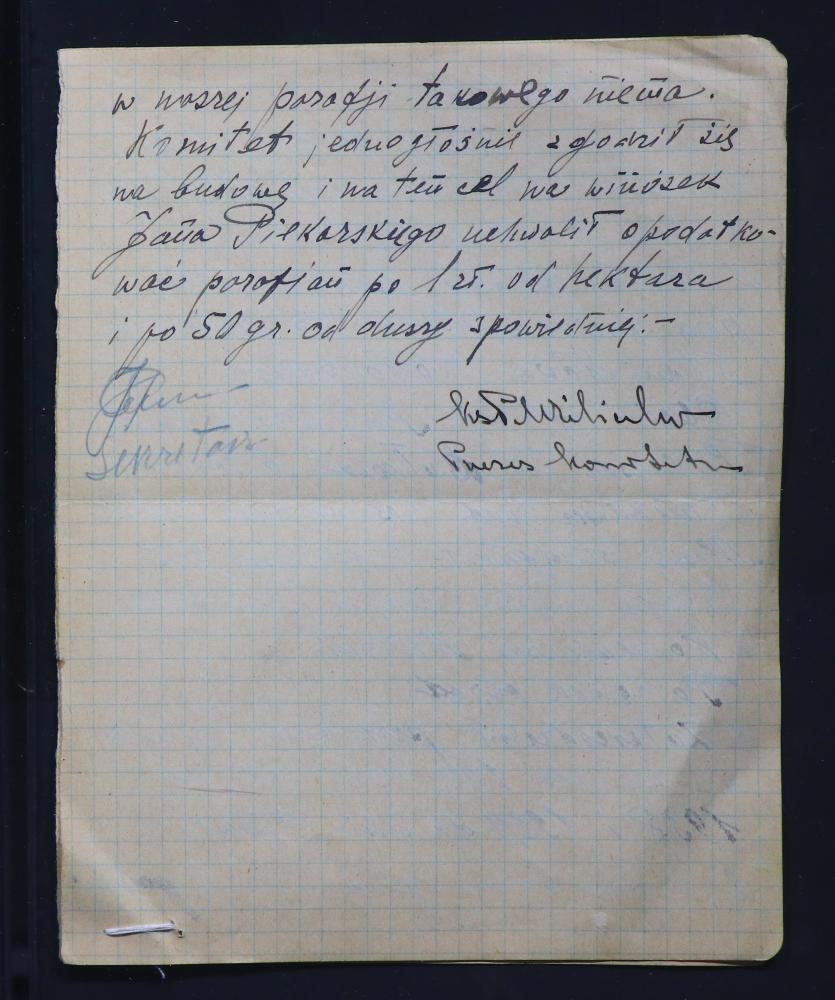 w naszej parafji takowego niema.
Komitet jednogłośnie zgodził się
na budowę i na ten cel na wniosek
Jana Piekarskiego uchwalił opodatko-
wać parafjan po 1 zł. od hektara
i po 50 gr. od duszy spowiedniej.-
Sekretarz
Prezes Komitetu